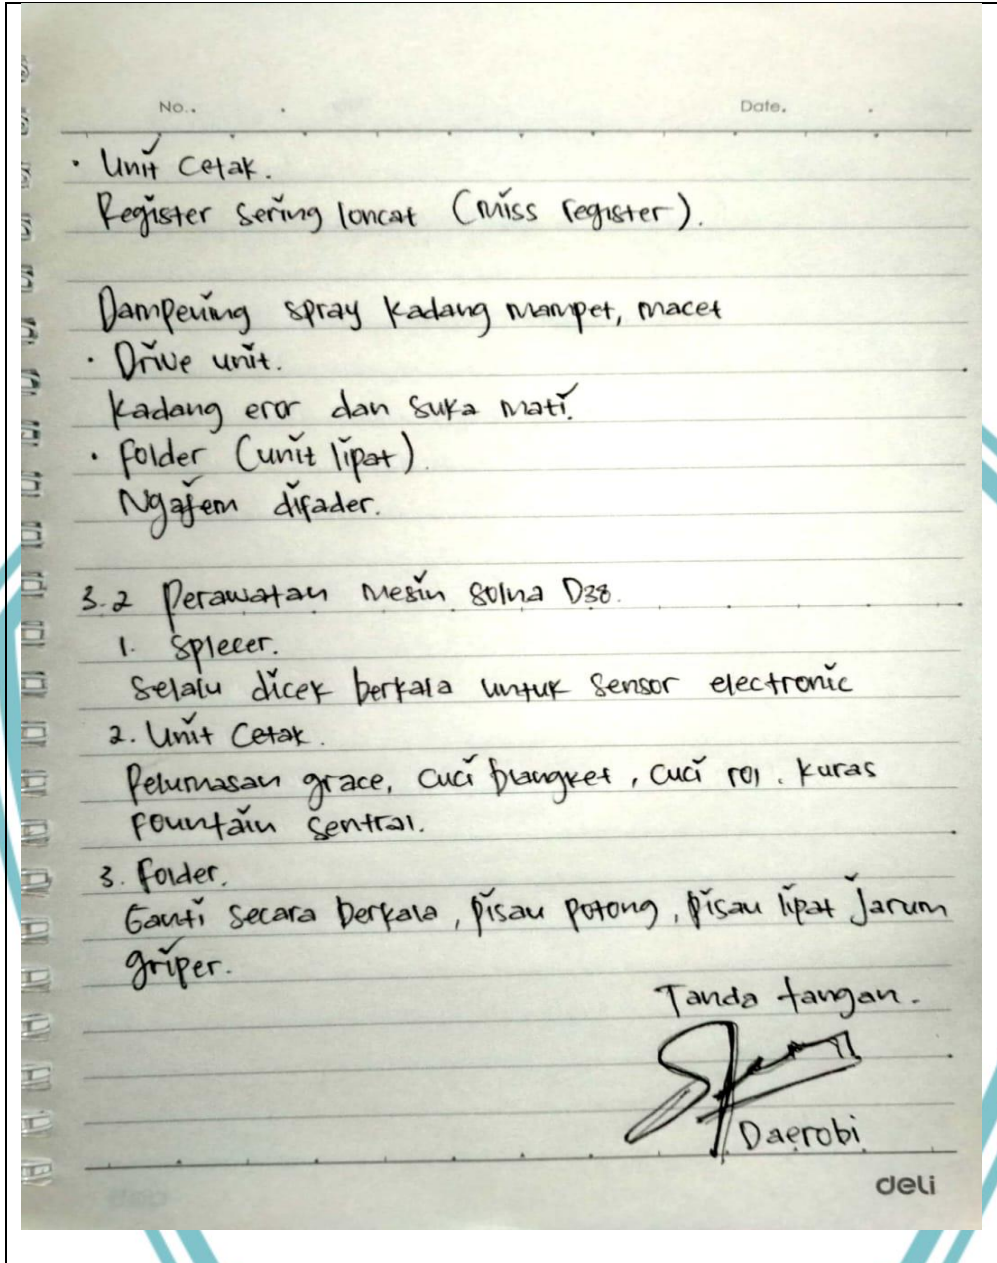 No..
Date.
· Unit Cetak.
Register sering loncat (miss register).
Dampening spray kadang mampet, macet
· Drive unit.
Kadang eror dan suka mati.
· folder (unit lipat).
Ngajem difader.
3.2 Perawatan mesin Solna D38.
1. Splecer.
Selalu dicek berkala untuk Sensor electronic
2. Unit Cetak.
Pelumasan grace, Cuci blangket, Cuci rol. Kuras
fountain Sentral.
3. Folder.
Ganti Secara berkala, pisau potong, pisau lipat Jarum
griper.
Tanda tangan.
Daerobi
deli